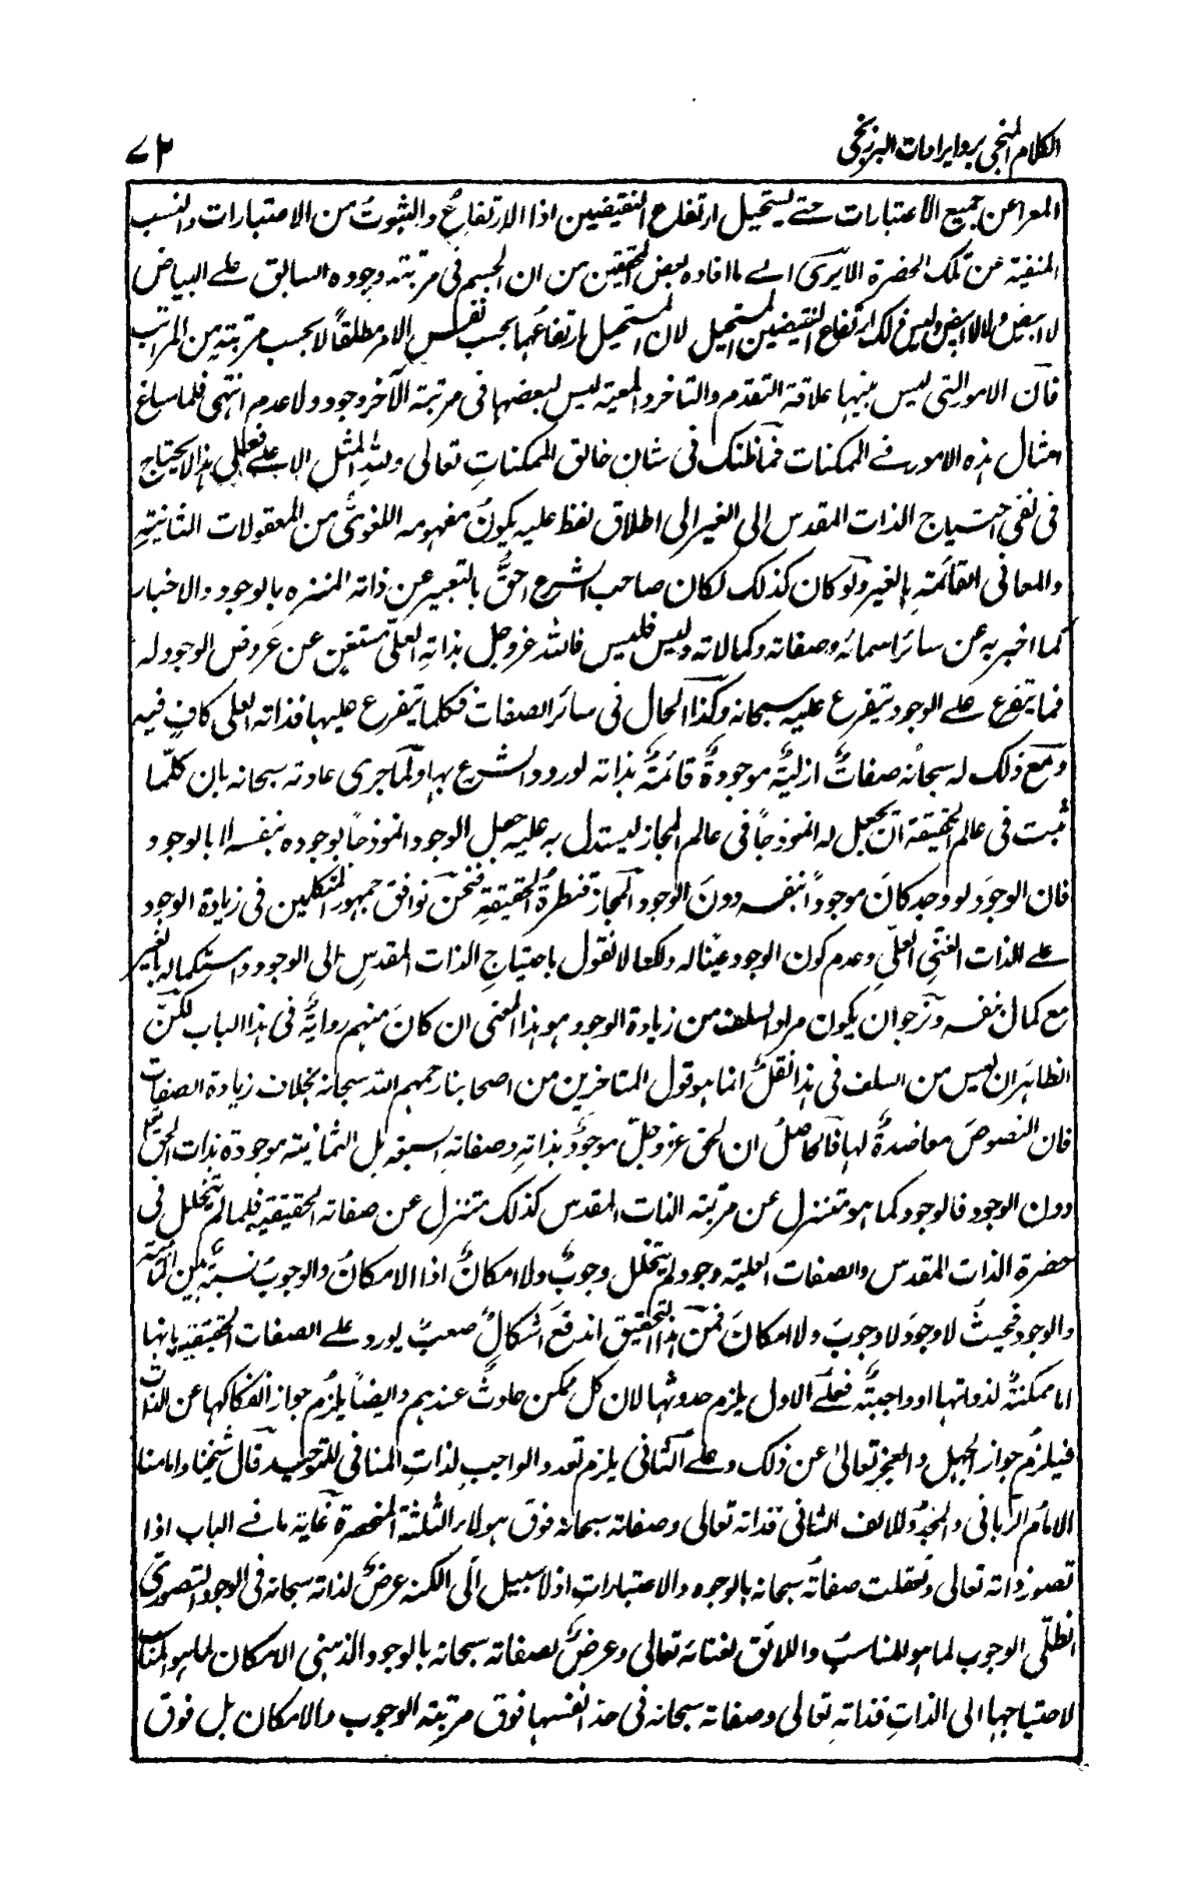 الکلام المنجی برد ایرادات البرزنجی
۷۲
المعرا عن جمیع الاعتبارات حتے یستحیل ارتفاع النقیضین اذا الارتفاعُ والثبوتُ من الاعتبارات والنسب
المنفیة عن تلک الحضرة الا یری الے ما افاده بعض المحققین من ان الجسم فی مرتبته وجوده السابق علے البیاض
لا ابیض ولا لا ابیض ولیس ذلک ارتفاع النقیضین المستحیل لان المستحیل ارتفاعهما بحسب نفس الامر مطلقاً لا بحسب مرتبة من المراتب
فان الامور التی لیس بینها علاقة التقدم والتاخر والمعیته لیس لبعضها فی مرتبة الآخر وجود ولا عدم انتهی فلما ساغ
امثال هذه الامور فے الممکنات فما ظنک فی شان خالق الممکناتِ تعالی وللهِ المثل الاعلے فعلی هذا لا یحتاج
فی نفی احتیاج الذات المقدس الی الغیر الی اطلاق لفظ علیه یکونُ مفهومه اللغویُّ من المعقولات الثانیتهِ
والمعانی القائمتهِ بالغیر ولو کان کذلک لکان صاحب الشرع احقَّ بالتعبیر عن ذاته المنزه بالوجود والاخبار
کما اخبر به عن سائر اسمائه وصفاته وکمالاته ولیس فلیس فالله عز وجل بذاتهِ العلیّ مستغنٍ عن عروض الوجود له
فما یتفرع علے الوجود یتفرع علیه سبحانه وکذا الحال فی سائر الصفات فکلما یتفرع علیها فذاته العلی کافٍ فیه
ومع ذلک له سبحانُه صفاتٌ ازلیةٌ موجودةٌ قائمةٌ بذاته لورود الشرع بها ولما جری عادته سبحانه بان کلما
ثبت فی عالم الحقیقة ان یجعل له انموذجاً فی عالم المجاز لیستدل به علیه جعل الوجود انموذجاً لوجوده بنفسه لا بالوجود
فان الوجودَ لو وجد کانَ موجوداً بنفسه دونَ الوجود المجاز قنطرةُ الحقیقةِ فنحن نوافق جمهور المتکلمین فی زیادة الوجود
علے الذات الغنی العلی وعدم کون الوجود عینًا له ولکنا لا نقول باحتیاجِ الذات المقدسِ الی الوجود واستکماله بالغیر
مع کمال نفسه ونرجو ان یکون مراد السلف من زیادة الوجود هو هذا المعنی ان کانَ منهم روایةٌ فی هذا الباب لکنّ
الظاهرَ ان لیس من السلف فی هذا نقلٌ انما هو قول المتاخرین من اصحابنا رحمهم الله سبحانه بخلاف زیادة الصفات
فان النصوصَ معاضدةٌ لها فالحاصلُ ان الحق عز وجلّ موجودٌ بذاتهِ وصفاتهِ السبعه بل الثمانیته موجودة بذات الحق تعالی
دون الوجود فالوجود کما هو متنزل عن مرتبته الذات المقدس کذلک متنزل عن صفاته الحقیقیه فلما لم یتخلل فی
حضرة الذات المقدس والصفات العلیته وجود لم یتخلل وجوبٌ ولا امکانٌ اذا الامکانُ والوجوبُ نسبةٌ بین الماهیته
والوجود فحیثُ لا وجودَ لا وجوبَ ولا امکانَ فمن هذا التحقیق اندفعَ اشکالٌ صعبٌ یورد علے الصفات الحقیقیه بانها
اما ممکنةٌ لذواتها او واجبتةٌ فعلے الاول یلزم حدوثها لان کل ممکن حادثٌ عندهم وایضاً یلزم جواز انفکاکها عن الذات
فیلزم جواز الجهل والعجز تعالیٰ عن ذلک وعلے الثانی یلزم تعدد الواجب لذاتِ المنافی للتوحید قال شیخنا وامامنا
الامامُ الربانی والمجددُ للالف الثانی فذاته تعالی وصفاته سبحانه فوق هولاء الثلثة المنحصرة غایته ما فے الباب اذا
تصور ذاته تعالی وتعقلت صفاتُه سبحانه بالوجوه والاعتبارات اذ لا سبیل الی الکنه عرضٌ لذاته سبحانه فی الوجود التصوریّ
الظلّی الوجوب لما هو المناسبُ واللائق لغنائه تعالی وعرضَ لصفاته سبحانه بالوجود الذهنی الامکان لما هو المناسب
لاحتیاجها الی الذاتِ فذاته تعالی وصفاته سبحانه فی حد انفسها فوق مرتبته الوجوب والامکان بل فوق